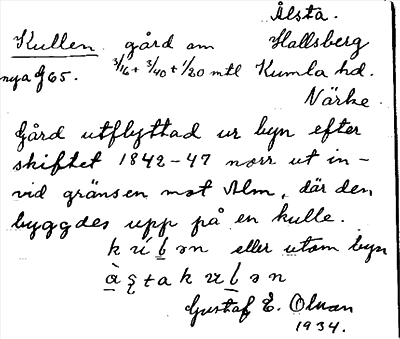 Ålsta.
Kullen gård om Hallsberg
nya J65. 3/16 + 3/40 + 1/20 mtl Kumla hd.
Närke.
Gård utflyttad ur byn efter
skiftet 1842-47 norr ut in-
vid gränsen mot Alm, där den
byggdes upp på en kulle.
eller utom byn
Gustaf E. Olsson
1934.